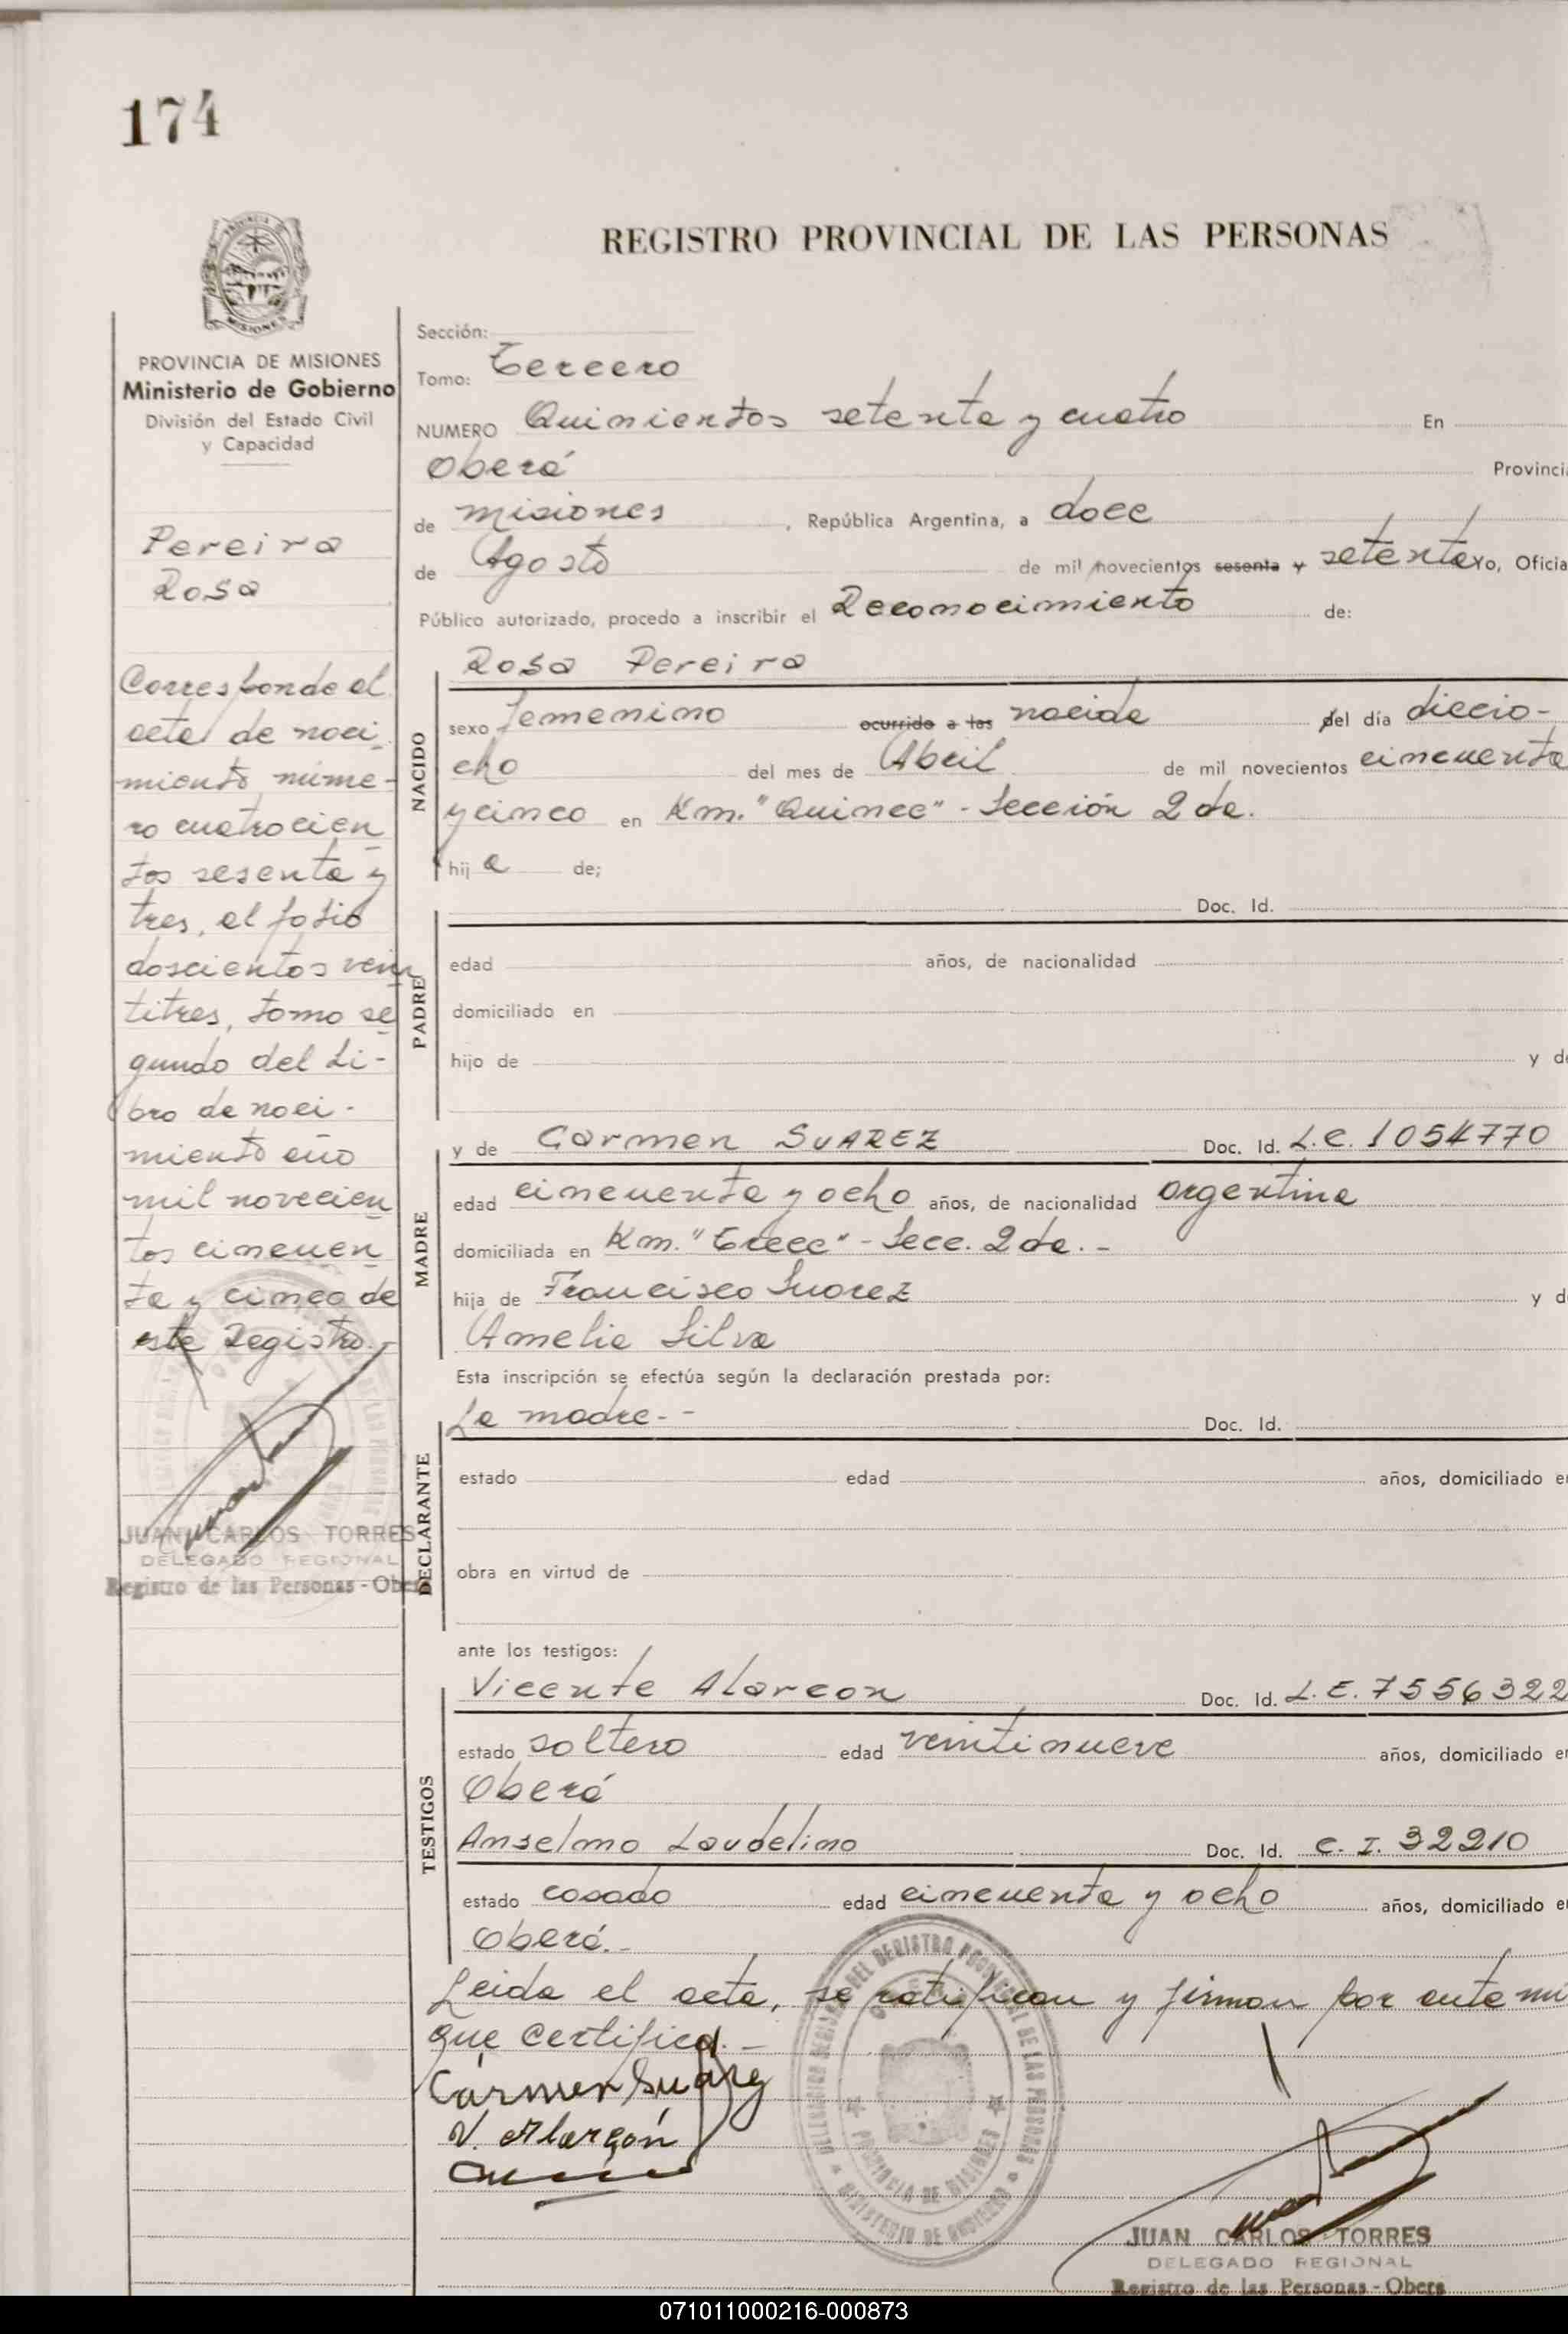 174
REGISTRO PROVINCIAL DE LAS PERSONAS
PROVINCIA DE MISIONES
Ministerio de Gobierno
División del Estado Civil
y Capacidad
Pereira
Rosa
Corresponde al
acta de naci
miento núme-
ro cuatrocien
tos sesenta y
tres, al folio
doscientos vein
titres, tomo se
gundo del Li-
bro de naci-
miento año
mil novecien
tos cincuen
ta y cinco de
este Registro.-
JUAN CARLOS TORRES
DELEGADO REGIONAL
Registro de las Personas - Obera
Sección:
Tomo: Tercero
NUMERO Quinientos setenta y cuatro En
Oberá Provincia
de misiones, República Argentina, a doce
de Agosto de mil novecientos sesenta y setenta yo, Oficial
Público autorizado, procedo a inscribir el Reconocimiento de:
Rosa Pereira
NACIDO
sexo femenino ocurrido a las nacida del día diecio-
cho del mes de Abril de mil novecientos cincuenta
y cinco en Km. "Quince" - Sección 2da.
hij a de;
PADRE
Doc. Id.
edad años, de nacionalidad
domiciliado en
hijo de y de
MADRE
y de Carmen SUAREZ Doc. Id. L.C. 1054770
edad cincuenta y ocho años, de nacionalidad argentina
domiciliada en Km. "Trece" - Secc. 2da. -
hija de Francisco Suarez y d
Amelia Silva
Esta inscripción se efectúa según la declaración prestada por:
DECLARANTE
La madre.- - Doc. Id.
estado edad años, domiciliado en
obra en virtud de
ante los testigos:
TESTIGOS
Vicente Alarcon Doc. Id. L.E. 7556322
estado soltero edad veintinueve años, domiciliado en
Oberá
Anselmo Laudelino Doc. Id. C. I. 32210
estado casado edad cincuenta y ocho años, domiciliado en
Oberá.-
Leida el acta, se ratifican y firman por ante mi
que certifico.-
Cármen Suárez
V. Alarcón
JUAN CARLOS TORRES
DELEGADO REGIONAL
Registro de las Personas - Obera
071011000216-000873